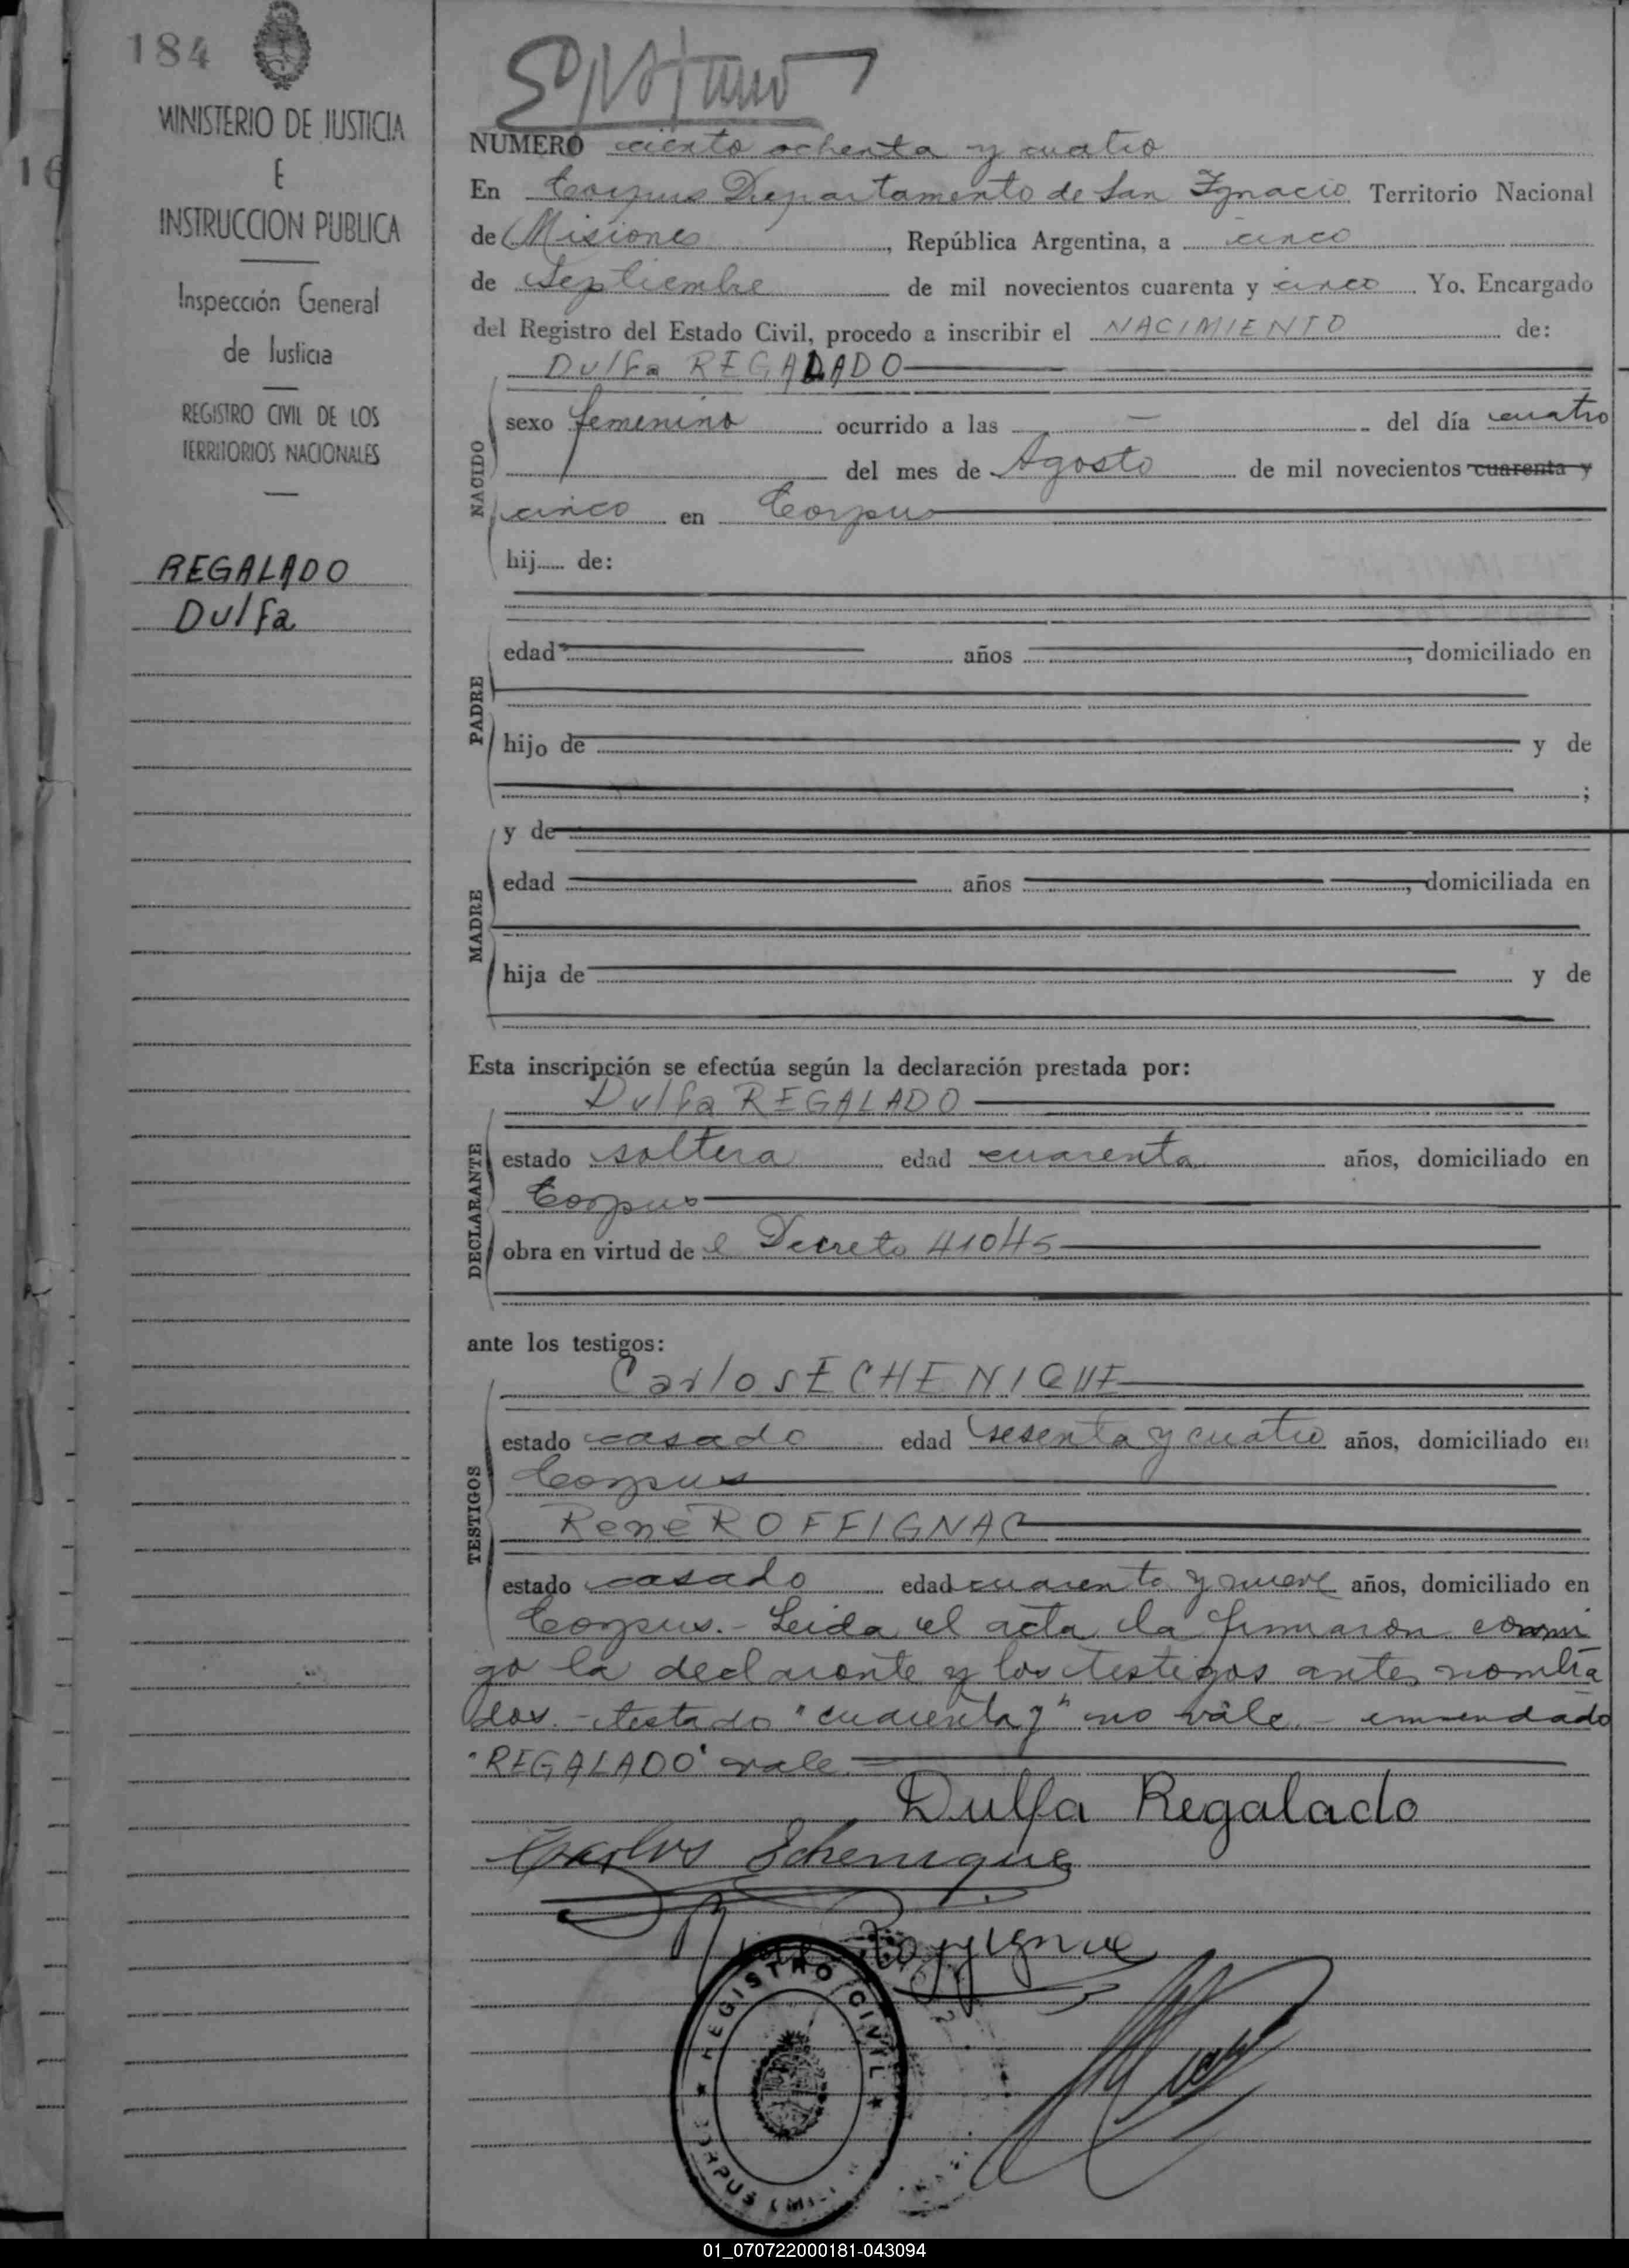 184
MINISTERIO DE JUSTICIA
E
INSTRUCCION PUBLICA
Inspección General
de Justicia
REGISTRO CIVIL DE LOS
TERRITORIOS NACIONALES
REGALADO
Dulfa
16
NUMERO ciento ochenta y cuatro
En Corpus Departamento de San Ygnacio Territorio Nacional
de Misiones, República Argentina, a cinco
de Septiembre de mil novecientos cuarenta y cinco. Yo, Encargado
del Registro del Estado Civil, procedo a inscribir el NACIMIENTO de:
Dulfa REGALADO
NACIDO
sexo femenino ocurrido a las — del día cuatro
del mes de Agosto de mil novecientos cuarenta y
cinco en Corpus
hij..... de:
PADRE
edad años, domiciliado en
hijo de y de
;
MADRE
y de
edad años, domiciliada en
hija de y de
Esta inscripción se efectúa según la declaración prestada por:
DECLARANTE
Dulfa REGALADO
estado soltera edad cuarenta años, domiciliado en
Corpus
obra en virtud de l Decreto 41045
ante los testigos:
TESTIGOS
Carlos ECHENIQUE
estado casado edad sesenta y cuatro años, domiciliado en
Corpus
Rene ROFFIGNAC
estado casado edad cuarenta y nueve años, domiciliado en
Corpus.- Leida el acta la firmaron conmi
go la declarante y los testigos antes nombra
dos.- testado "cuarenta y" no vale.- enmendado
"REGALADO" vale.
Dulfa Regalado
Carlos Echenique
Roffignac
REGISTRO CIVIL
CORPUS (MIS.)
01_070722000181-043094